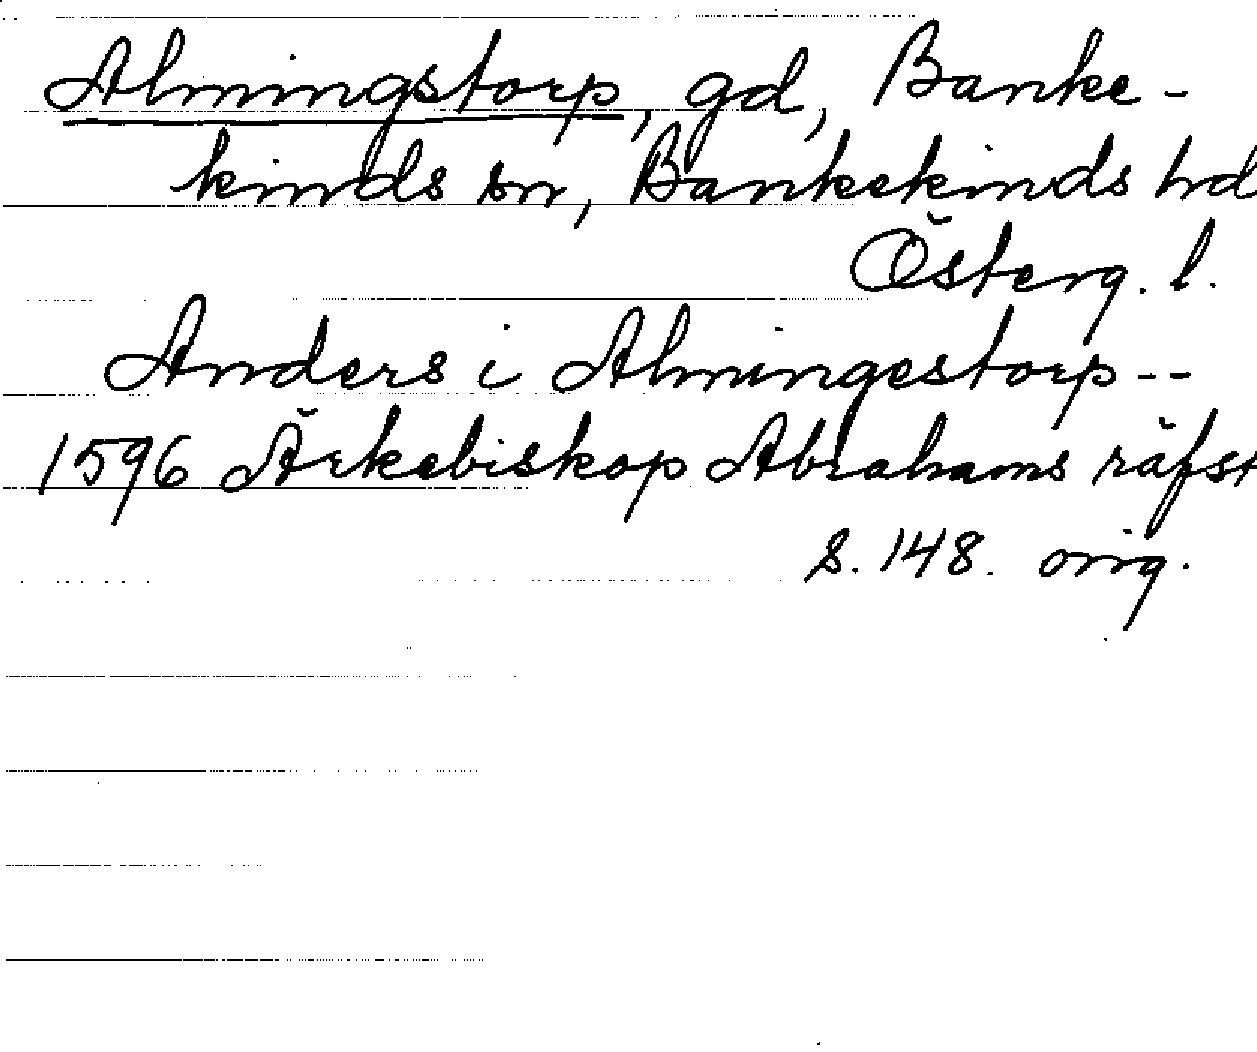 Almingstorp, gd, Banke-
kinds sn, Bankekinds hd
Österg. l.
Anders i Almingestorp--
1596 Ärkebiskop Abrahams räfst
s. 148. orig.